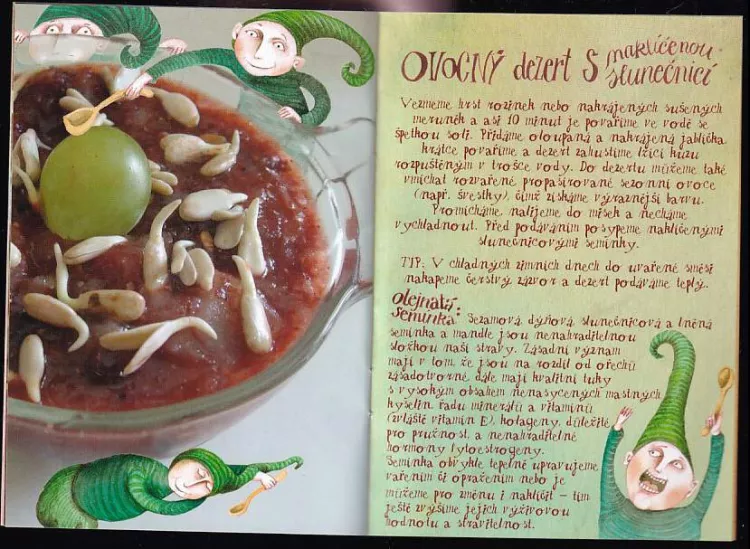 OVOCNÝ dezert S naklíčenou
slunečnicí
Vezmeme hrst rozinek nebo nakrájených sušených
meruněk a asi 10 minut je povaříme ve vodě se
špetkou soli. Přidáme oloupaná a nakrájená jablíčka
krátce povaříme a dezert zahustíme lžící kuzu
rozpuštěným v trošce vody. Do dezertu můžeme také
vmíchat rozvařené propasírované sezonní ovoce
(např. švestky) čímž získáme výraznější barvu.
Promícháme nalijeme do misek a necháme
vychladnout. Před podáváním posypeme naklíčenými
slunečnicovými semínky.
TIP: V chladných zimních dnech do uvařené směsi
nakapeme čerstvý zázvor a dezert podáváme teplý.
Olejnatá
semínka: Sezamová, dýňová, slunečnicová a lněná
semínka a mandle jsou nenahraditelnou
složkou naší stravy. Zásadní význam
mají v tom, že jsou na rozdíl od ořechů
zásadotvorné, dále mají kvalitní tuky
s vysokým obsahem nenasycených mastných
kyselin řadu minerálů a vitamínů
(zvláště vitamin E), kolageny, důležité
pro pružnost, a nenahraditelné
hormony fytoestrogeny.
Semínka obvykle tepelně upravujeme
vařením či opražením nebo je
můžeme pro změnu i naklíčit – tím
ještě zvýšíme jejich výživovou
hodnotu a stravitelnost.